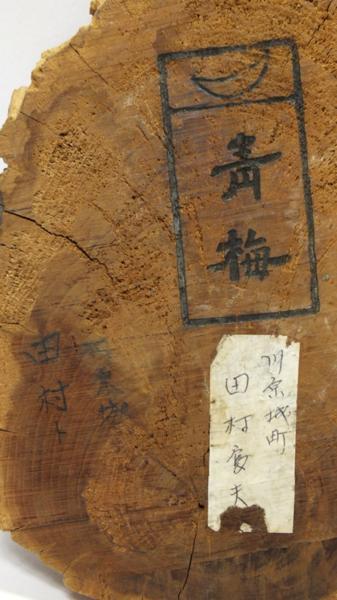 青梅
川原城町
田村富夫
田村